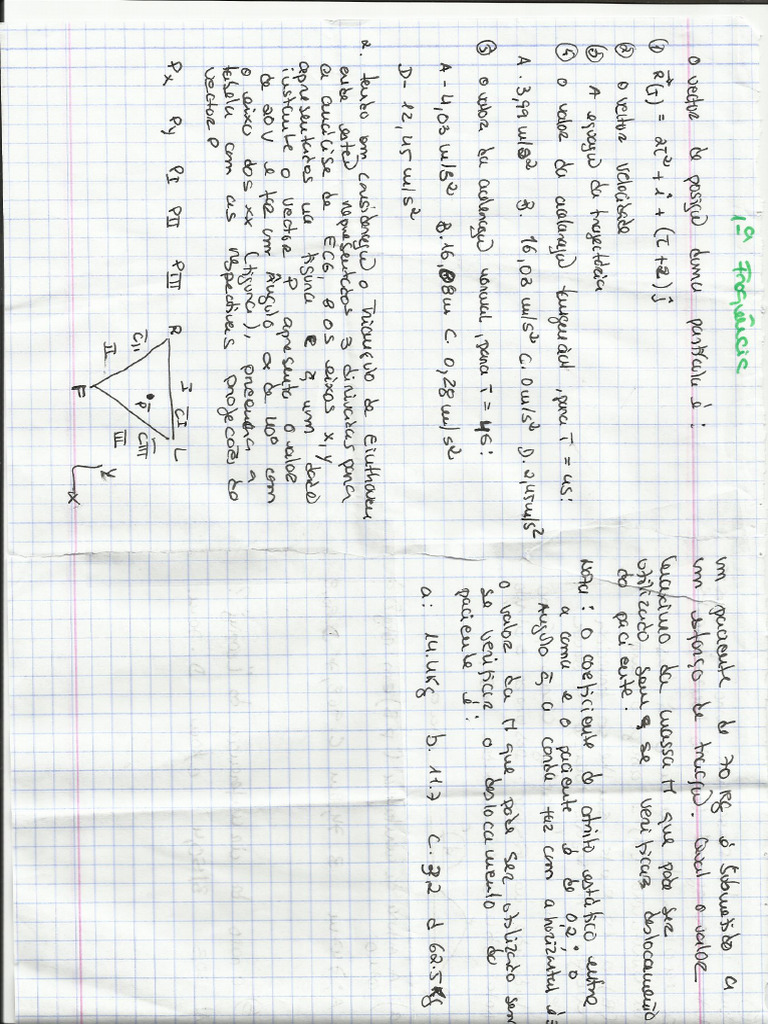 1ª Frequência
O vector de posição duma partícula é:
① R(t) = 2t² + i + (t+2) j
② O vector velocidade
③ A equação da trajectória
④ O valor da aceleração tangencial, para t = 4s:
A. 3,99 m/s² B. 16,03 m/s² C. 0 m/s² D. 2,45 m/s²
⑤ O valor da aceleração normal, para t = 4s:
A - 4,03 m/s² B. 16,08 m C. 0,28 m/s²
D - 12,45 m/s²
2. tendo em consideração o Triângulo de Einthoven
onde estão representadas 3 derivadas para
a análise de ECG, e os eixos x, y
apresentados na figura e, num dado
instante o vector P apresenta o valor
de 20V e faz um Ângulo α de 40º com
o eixo dos xx (figura), preencha a
tabela com as respectivas projecções do
vector P
Px Py PI PII PIII
R I CI L
CII P CIII
II III
F
Y
X
um paciente de 70 kg é submetido a
um esforço de tracção. Qual o valor
máximo da massa M que pode ser
utilizado sem q se verificar deslocamento
do paciente.
Nota: O coeficiente do atrito estático entre
a cama e o paciente é de 0,2; o
Ângulo q a corda faz com a horizontal é
O valor da M que pode ser utilizado sem
se verificar o deslocamento do
paciente é:
a: 14.4Kg b. 11.7 c. 3,2 d 62.5Kg